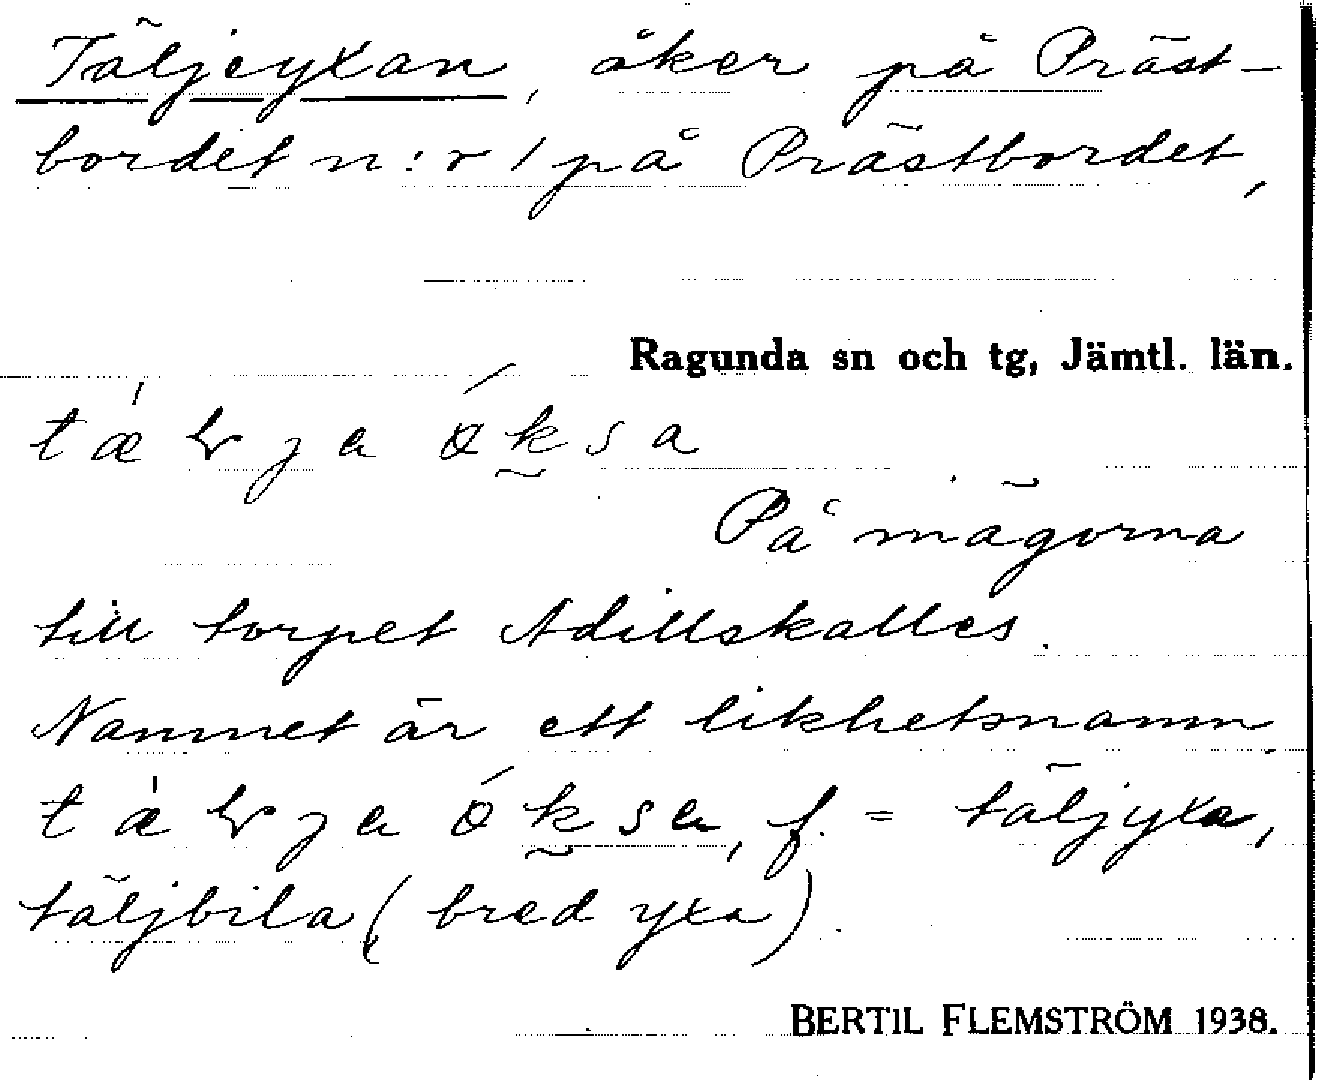 Täljeyxan, åker på Präst-
bordet n:r 1 på Prästbordet,
Ragunda sn och tg, Jämtl. län.
På mägorna
till torpet Adillskalles.
Namnet är ett likhetsnamn.
f. = täljyxa,
täljbila (bred yxa).
BERTIL FLEMSTRÖM 1938.